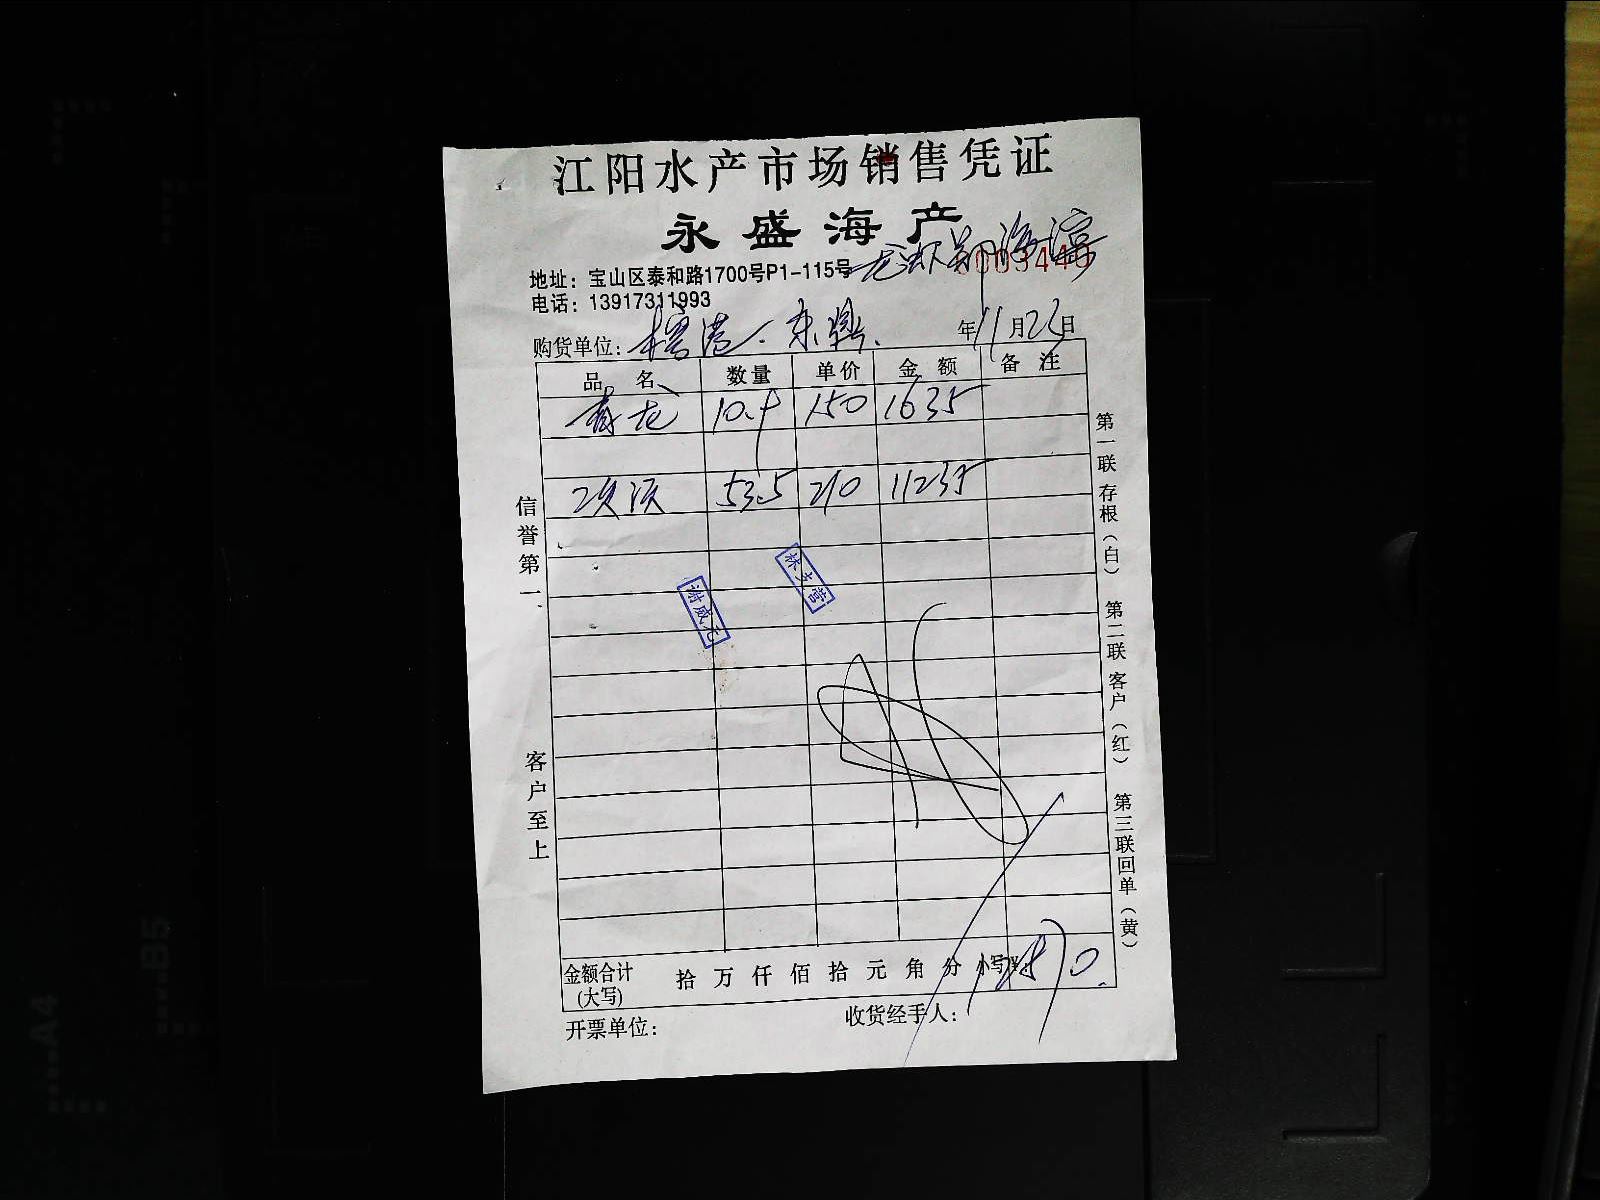 江阳水产市场销售凭证
永盛海产
地址：宝山区泰和路1700号P1-115号
0003440
电话：13917311993
购货单位： 年11月23日
品 名 数量 单价 金 额 备 注
青龙 10.9 150 1635
53.5 210 11235
信誉第一
客户至上
第一联存根（白） 第二联客户（红） 第三联回单（黄）
谢威元
金额合计(大写) 拾 万 仟 佰 拾 元 角 分 小写¥: 12870.
开票单位： 收货经手人：